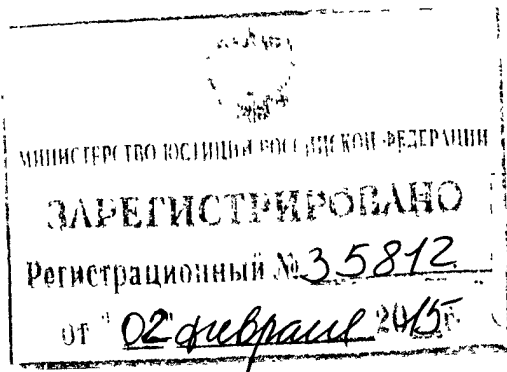 МИНИСТЕРСТВО ЮСТИЦИИ РОССИЙСКОЙ ФЕДЕРАЦИИ
ЗАРЕГИСТРИРОВАНО
Регистрационный № 35812
от "02" февраля 2015 г.